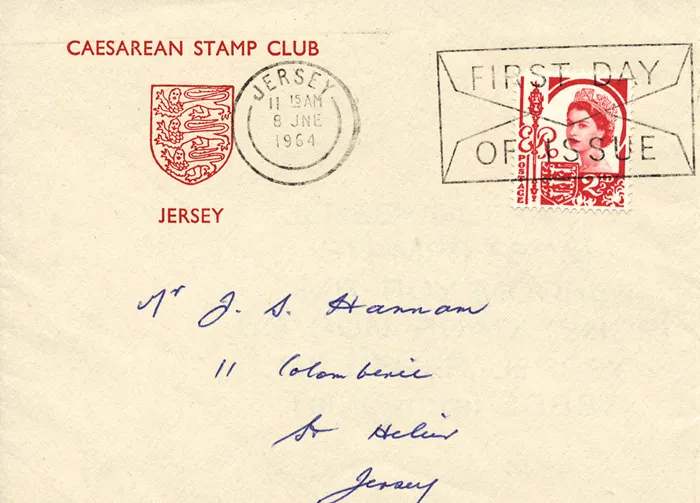 CAESAREAN STAMP CLUB
JERSEY
JERSEY
11 15 AM
8 JNE
1964
FIRST DAY
OF ISSUE
POSTAGE
2½D
Mr J. S. Hannam
11 Colomberie
St Helier
Jersey